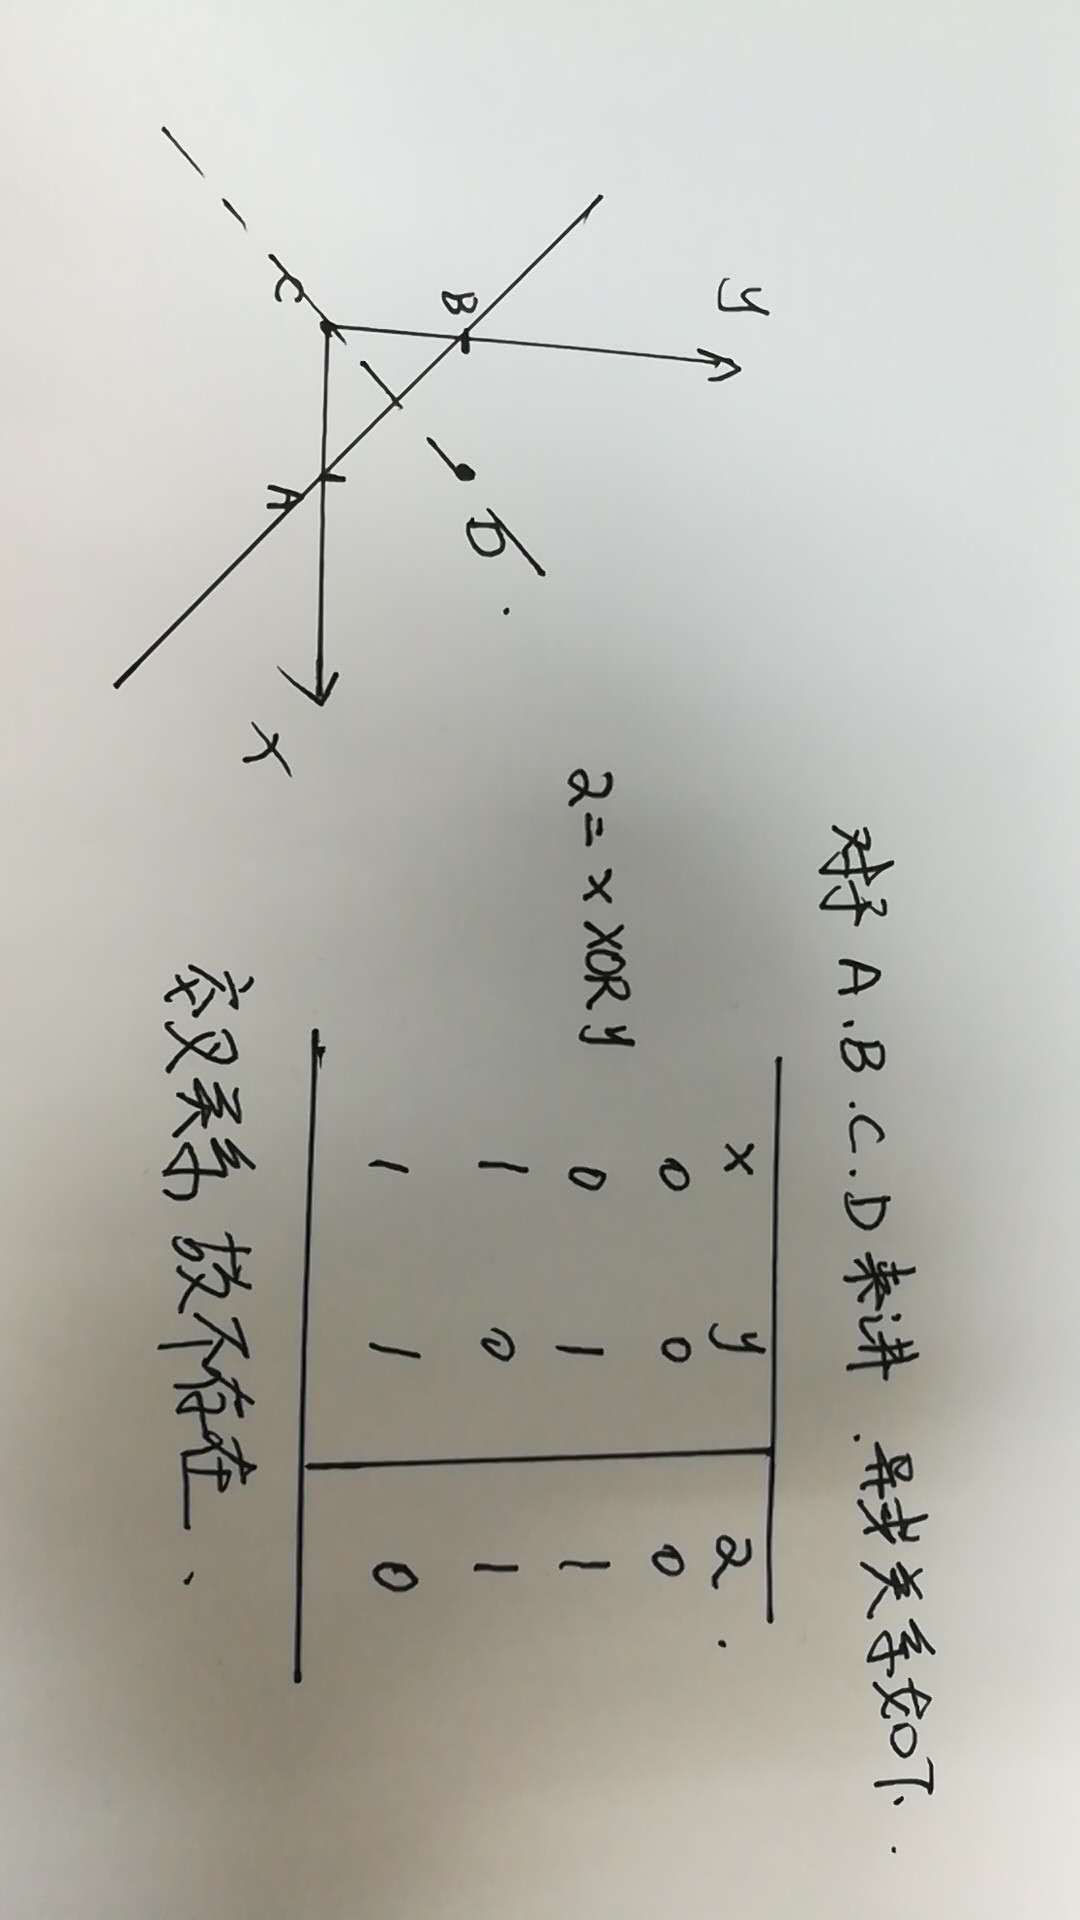 y
B
D
C
A
x
对于 A.B.C.D 来讲 . 异或关系如下.
z = x XOR y
x y z
0 0 0
0 1 1
1 0 1
1 1 0
交叉 故不存在.